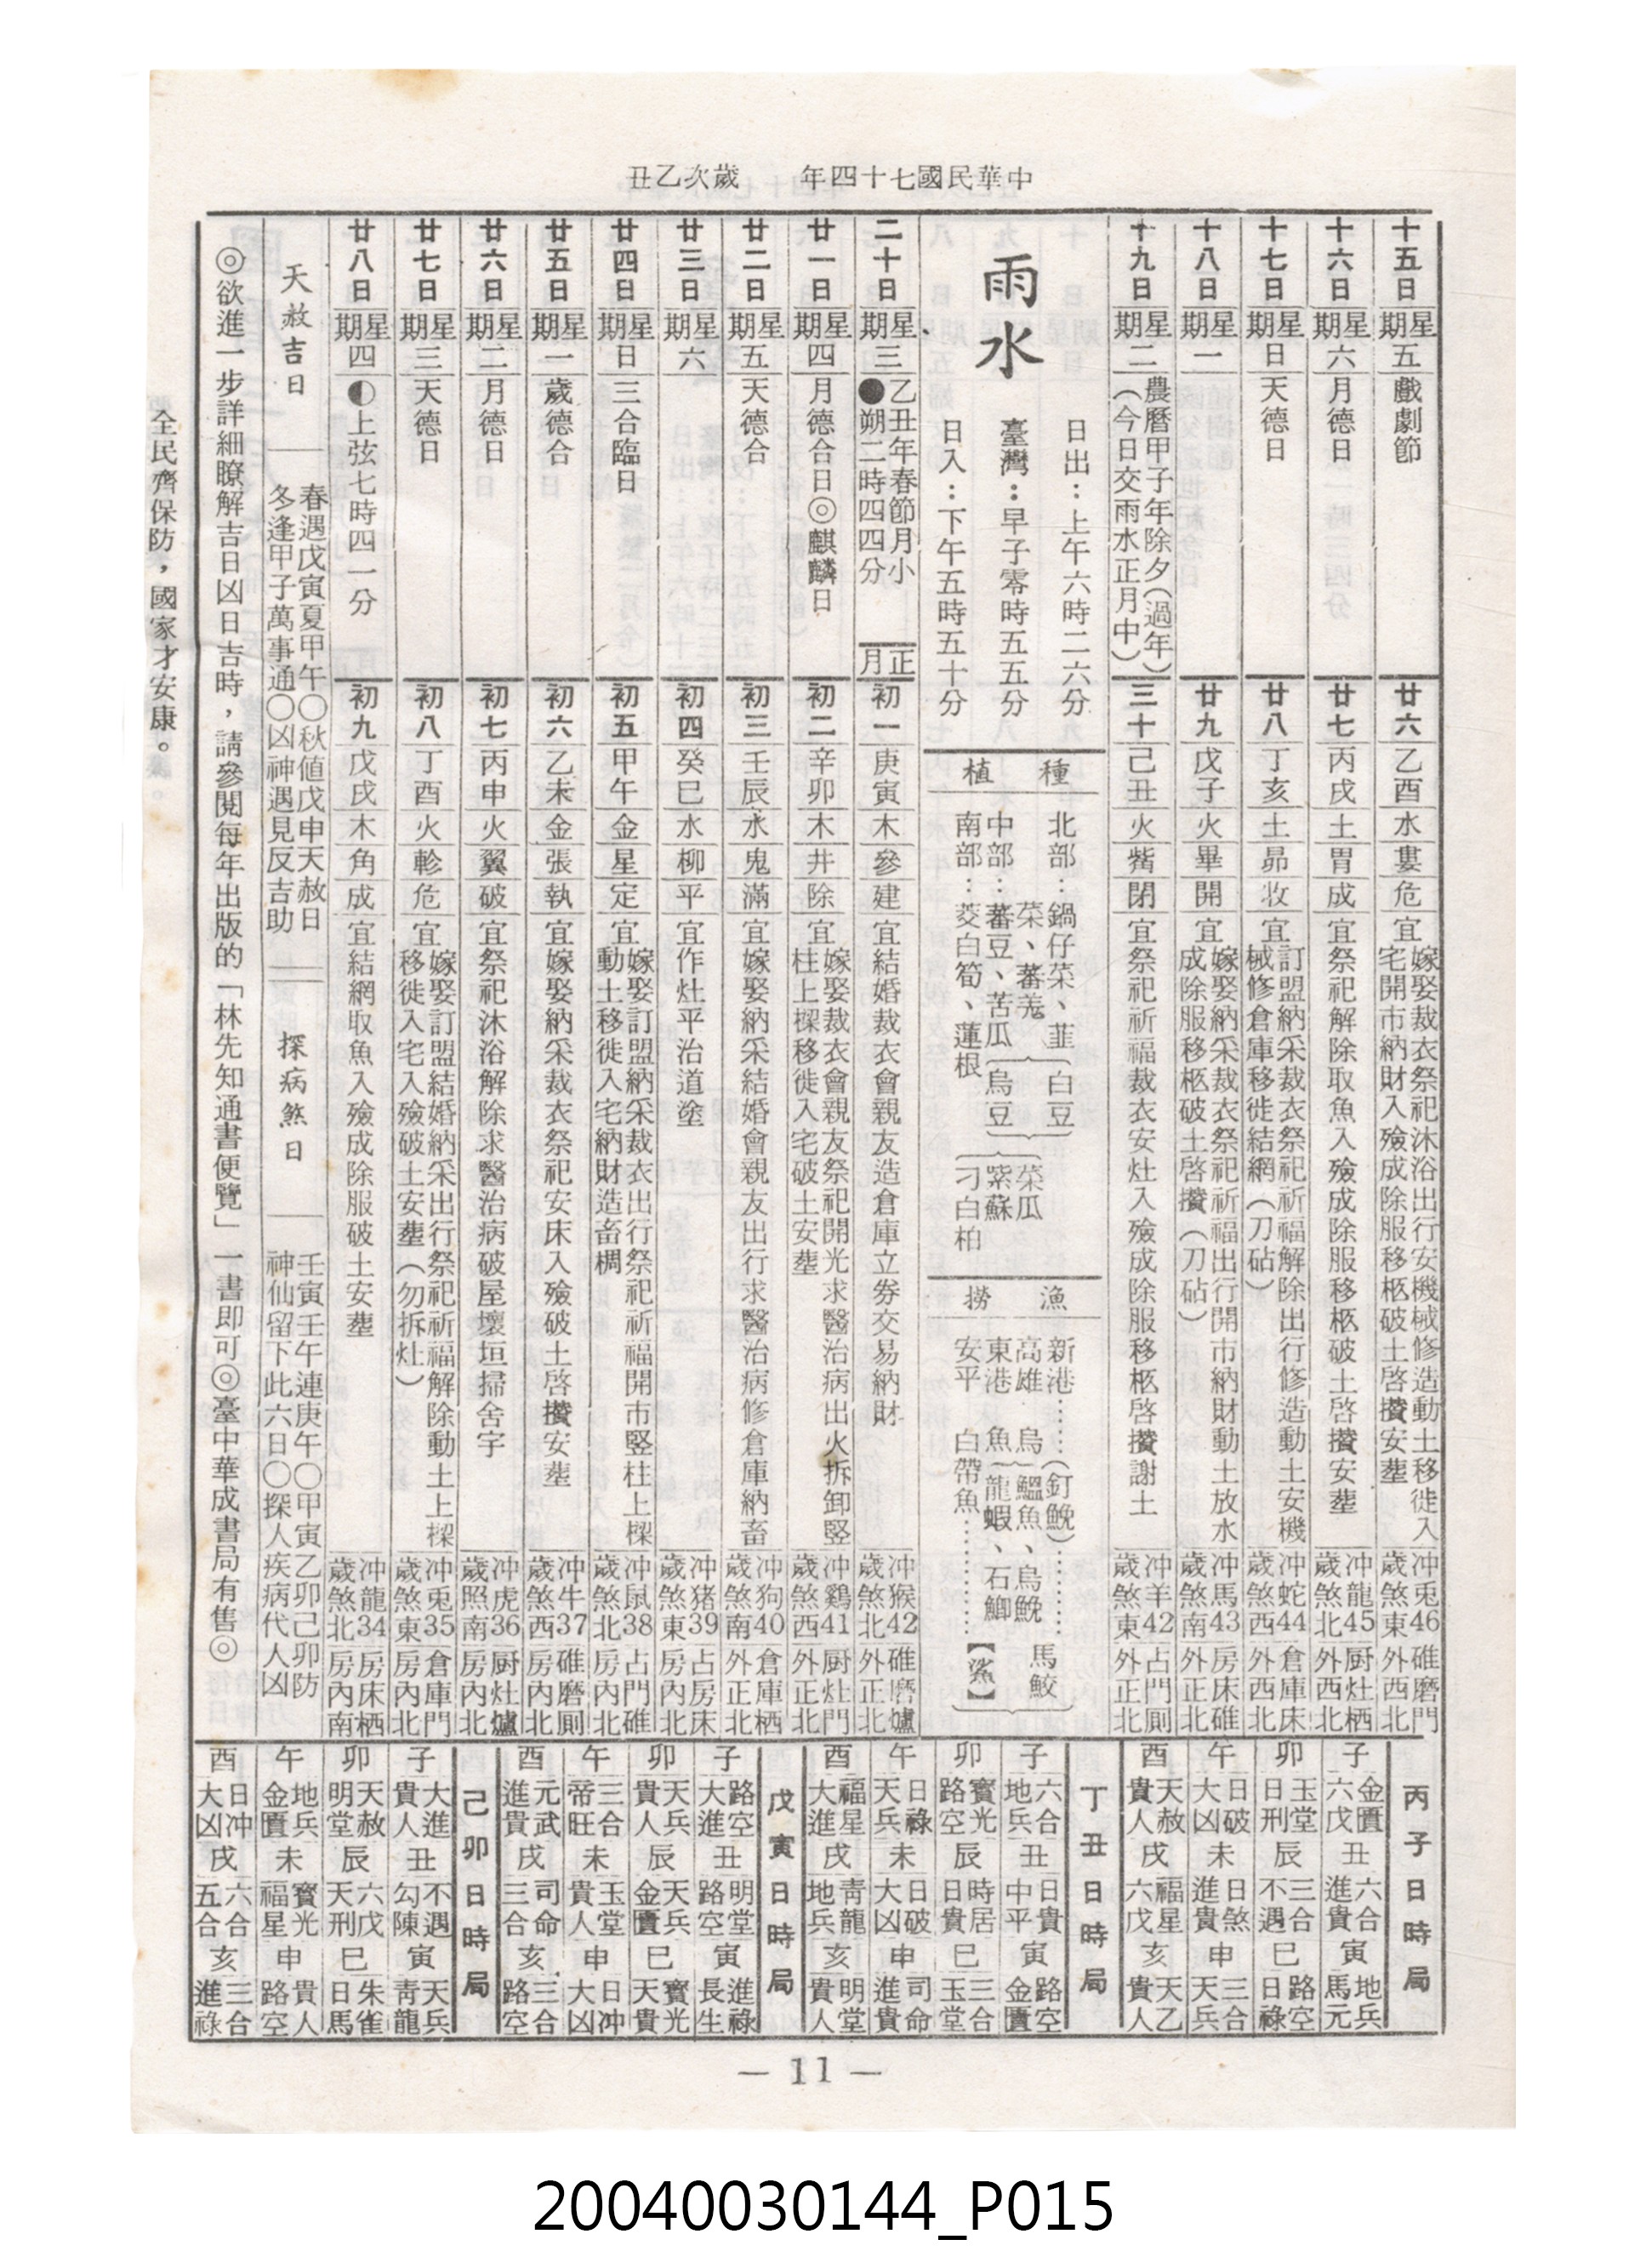 中華民國七十四年　歲次乙丑
十五日 星期五 戲劇節 廿六 乙酉 水 婁 危 宜 嫁娶裁衣祭祀沐浴出行安機械修造動土移徙入宅開市納財入殮成除服移柩破土啓攢安葬 冲兎46歲煞東 碓磨門外西北
十六日 星期六 月德日 廿七 丙戌 土 胃 成 宜 祭祀解除取魚入殮成除服移柩破土啓攢安葬 冲龍45歲煞北 厨灶栖外西北
十七日 星期日 天德日 廿八 丁亥 土 昴 收 宜 訂盟納采裁衣祭祀祈福解除出行修造動土安機械修倉庫移徙結網（刀砧） 冲蛇44歲煞西 倉庫床外西北
十八日 星期一 廿九 戊子 火 畢 開 宜 嫁娶納采裁衣祭祀祈福出行開市納財動土放水成除服移柩破土啓攢（刀砧） 冲馬43歲煞南 房床碓外正北
十九日 星期二 農曆甲子年除夕（過年）（今日交雨水正月中） 三十 己丑 火 觜 閉 宜 祭祀祈福裁衣安灶入殮成除服移柩啓攢謝土 冲羊42歲煞東 占門厠外正北
雨水
日出：上午六時二六分
臺灣：早子零時五五分
日入：下午五時五十分
種植
北部：鍋仔菜、韮菜、蕃羌 白豆 菜瓜
中部：蕃豆、苦瓜 烏豆 紫蘇
南部：茭白筍、蓮根 刁白柏
漁撈
新港……（釘鮸）………
高雄 烏 鰮魚、烏鮸 馬鮫
東港 魚 龍蝦、石鯽
安平 白帶魚…………【鯊】
二十日 星期三 乙丑年春節月小 ●朔二時四四分 正月 初一 庚寅 木 參 建 宜 結婚裁衣會親友造倉庫立券交易納財 冲猴42歲煞北 碓磨爐外正北
廿一日 星期四 月德合日◎麒麟日 初二 辛卯 木 井 除 宜 嫁娶裁衣會親友祭祀開光求醫治病出火拆卸竪柱上樑移徙入宅破土安葬 冲鷄41歲煞西 厨灶門外正北
廿二日 星期五 天德合 初三 壬辰 水 鬼 滿 宜 嫁娶納采結婚會親友出行求醫治病修倉庫納畜 冲狗40歲煞南 倉庫栖外正北
廿三日 星期六 初四 癸巳 水 柳 平 宜 作灶平治道塗 冲猪39歲煞東 占房床房內北
廿四日 星期日 三合臨日 初五 甲午 金 星 定 宜 嫁娶訂盟納采裁衣出行祭祀祈福開市竪柱上樑動土移徙入宅納財造畜椆 冲鼠38歲煞北 占門碓房內北
廿五日 星期一 歲德合 初六 乙未 金 張 執 宜 嫁娶納采裁衣祭祀安床入殮破土啓攢安葬 冲牛37歲煞西 碓磨厠房內北
廿六日 星期二 月德日 初七 丙申 火 翼 破 宜 祭祀沐浴解除求醫治病破屋壞垣掃舍宇 冲虎36歲照南 厨灶爐房內北
廿七日 星期三 天德日 初八 丁酉 火 軫 危 宜 嫁娶訂盟結婚納采出行祭祀祈福解除動土上樑移徙入宅入殮破土安葬（勿拆灶） 冲兎35歲煞東 倉庫門房內北
廿八日 星期四 ◐上弦七時四一分 初九 戊戌 木 角 成 宜 結網取魚入殮成除服破土安葬 冲龍34歲煞北 房床栖房內南
天赦吉日
春遇戊寅夏甲午○秋値戊申天赦日
冬逢甲子萬事通○凶神遇見反吉助
探病煞日
壬寅壬午連庚午○甲寅乙卯己卯防
神仙留下此六日○探人疾病代人凶
◎欲進一步詳細瞭解吉日凶日吉時，請參閱每年出版的「林先知通書便覽」一書即可◎臺中華成書局有售◎
全民齊保防，國家才安康。
丙子日時局
子 金匱六戊 丑 六合進貴 寅 地兵馬元
卯 玉堂日刑 辰 三合不遇 巳 路空日祿
午 日破大凶 未 日煞進貴 申 三合天兵
酉 天赦貴人 戌 福星六戊 亥 天乙貴人
丁丑日時局
子 六合地兵 丑 日貴中平 寅 路空金匱
卯 寳光路空 辰 時居日貴 巳 三合玉堂
午 日祿天兵 未 日破大凶 申 司命進貴
酉 福星大進 戌 靑龍地兵 亥 明堂貴人
戊寅日時局
子 路空大進 丑 明堂路空 寅 進祿長生
卯 天兵貴人 辰 天兵金匱 巳 寳光天貴
午 三合帝旺 未 玉堂貴人 申 日冲大凶
酉 元武進貴 戌 司命三合 亥 三合路空
己卯日時局
子 大進貴人 丑 不遇勾陳 寅 天兵靑龍
卯 天赦明堂 辰 六戊天刑 巳 朱雀日馬
午 地兵金匱 未 寳光福星 申 貴人路空
酉 日冲大凶 戌 六合五合 亥 三合進祿
— 11 —
20040030144_P015